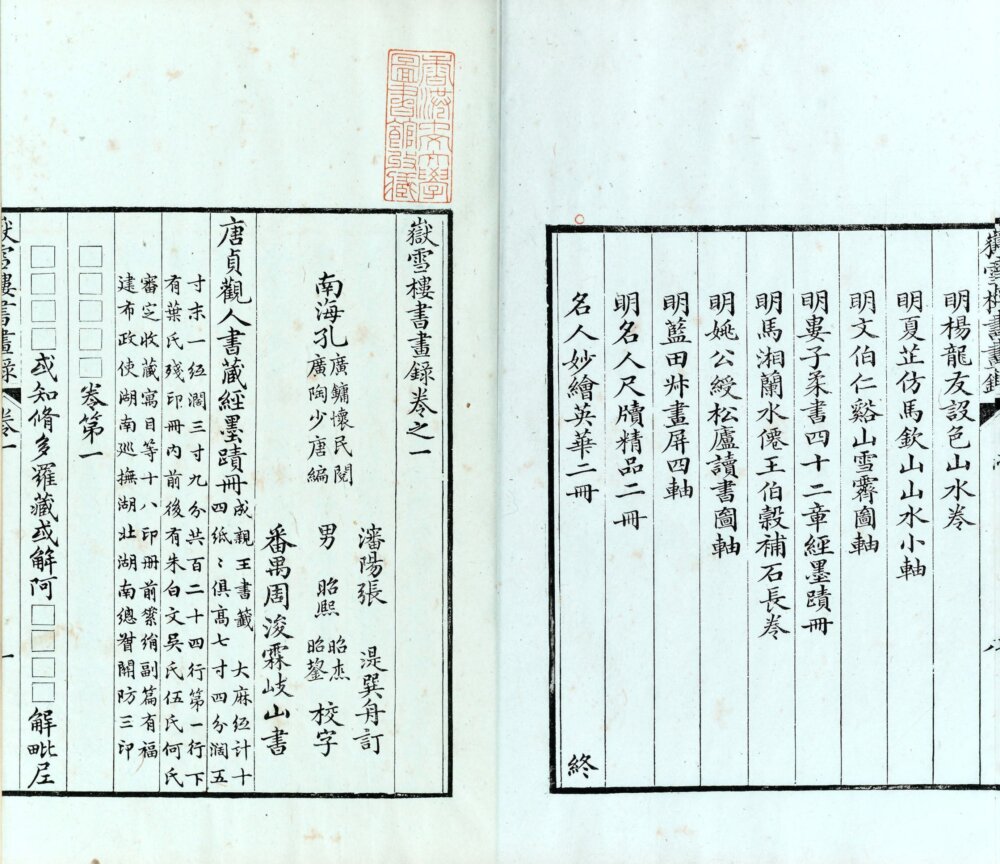 嶽雪樓書畫錄
明楊龍友設色山水卷
明夏芷仿馬欽山山水小軸
明文伯仁谿山雪霽圖軸
明婁子柔書四十二章經墨蹟冊
明馬湘蘭水僊王伯榖補石長卷
明姚公綬松廬讀書圖軸
明藍田叔畫屏四軸
明名人尺牘精品二冊
名人妙繪英華二冊
終
香港中文大學
圖書館收藏
嶽雪樓書畫錄卷之一
瀋陽張 湜巽舟訂
南海孔
廣鏞懷民閱
廣陶少唐編
男
昭熙
昭杰
昭鋆
校字
番禺周浚霖岐山書
唐貞觀人書藏經墨蹟冊
成親王書籤 大麻紙計十
四紙紙俱高七寸四分闊五
寸末一紙濶三寸九分共百二十四行第一行下
有葉氏殘印冊內前後有朱白文吳氏伍氏何氏
審定收藏寓目等十八印冊前綮綃副篇有福
建布政使湖南巡撫湖北湖南總督關防三印
□□□□□卷第一
□□□□□或知脩多羅藏或解阿□□□□解毗尼
嶽雪樓書畫錄 卷一
一